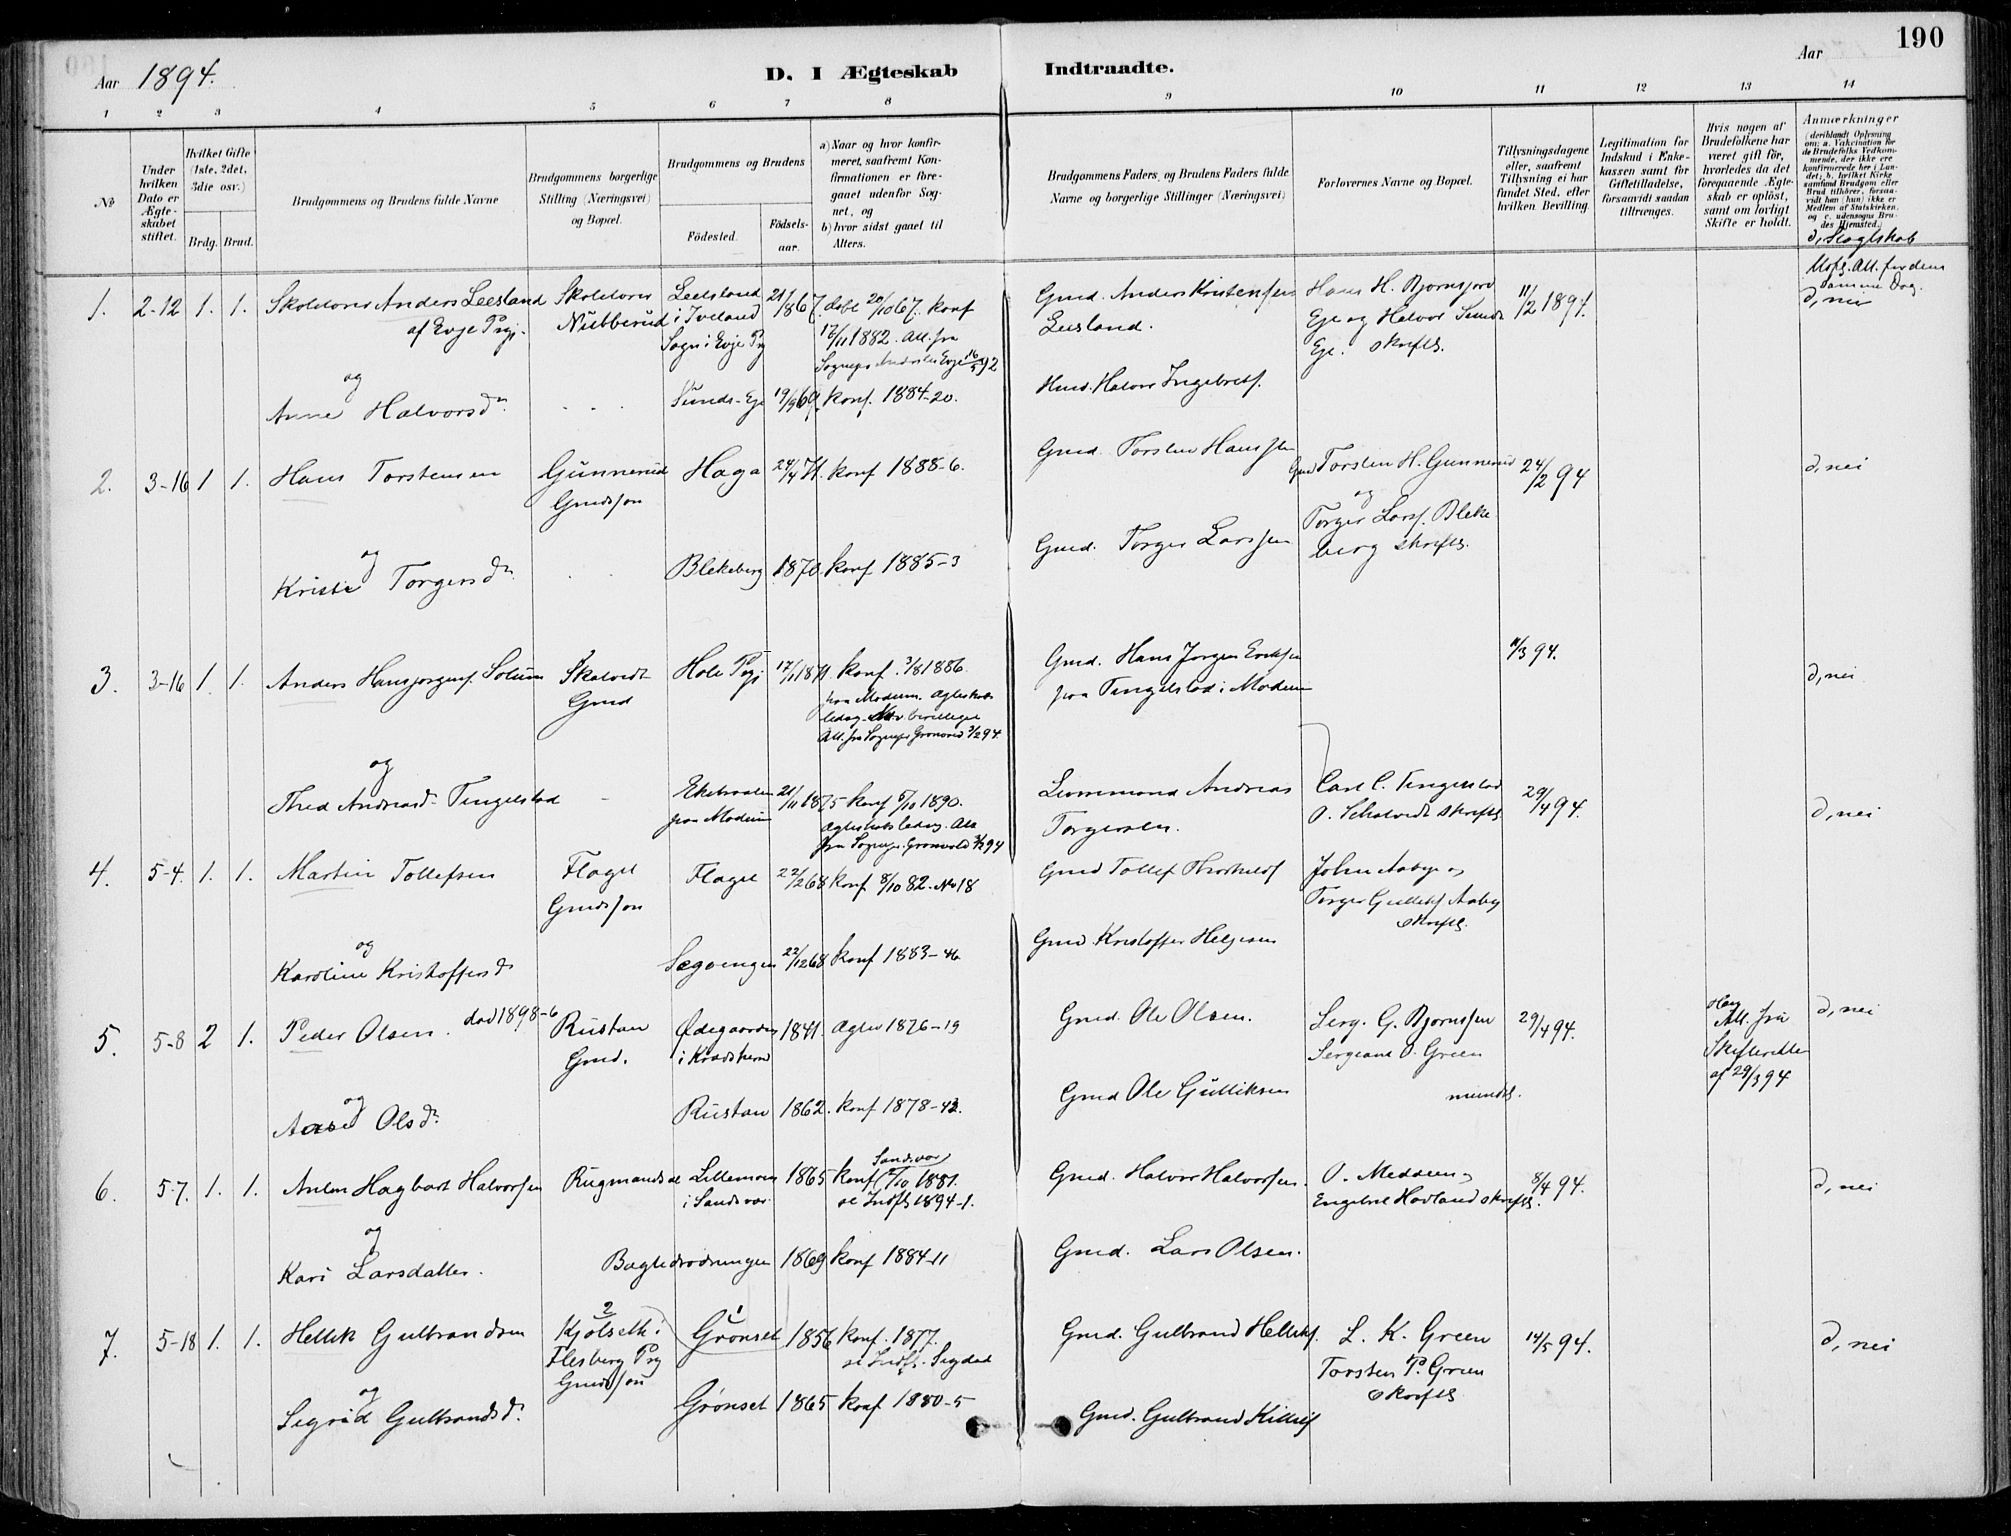 190
Aar 1894.
D. I Ægteskab Indtraadte.
Aar
1 2 3 4 5 6 7 8 9 10 11 12 13 14
No
Under hvilken Dato er Ægteskabet stiftet.
Hvilket Gifte (1ste, 2det, 3die osv.)
Brdg. Brud.
Brudgommens og Brudens fulde Navne
Brudgommens borgerlige Stilling (Næringsvei) og Bopæl.
Brudgommens og Brudens
Fødested. Fødselsaar.
a) Naar og hvor konfirmeret, saafremt Konfirmationen er foregaaet udenfor Sognet, og
b) hvor sidst gaaet til Alters.
Brudgommens Faders og Brudens Faders fulde Navne og borgerlige Stillinger (Næringsvei)
Forlovernes Navne og Bopæl.
Tillysningsdagene eller, saafremt Tillysning ei har fundet Sted, efter hvilken Bevilling.
Legitimation for Indskud i Enkekassen samt for Giftetilladelse, forsaavidt saadan tiltrænges.
Hvis nogen af Brudefolkene har været gift før, hvorledes da det foregaaende Ægteskab er opløst, samt om lovligt Skifte er holdt.
Anmærkninger (deriblandt Oplysning om: a. Vakcination for de Brudefolks Vedkommende, der ikke ere konfirmerede her i Landet; b. hvilket Kirkesamfund Brudgom eller Brud tilhører, forsaavidt han (hun) ikke er Medlem af Statskirken, og c. udensogns Brudes Hjemsted.)
d, Slægtskab
1. 2-12 1. 1. Skolelærer Anders Leesland
af Evje Prgj.
Skolelærer Nubberud
Leesland i Iveland Sogn i Evje Pg
21/ 1867. døbt 20/10 67. konf
17/11 1882. Att. fra
Sognepr. Evje 16/5 92
Gmd. Anders Kristensen
Leesland.
Hans H. Bjørnsjord
Eje og Halvor Sunds
Eje. skriftl.
11/2 1894.
Att. fra dem
samme Dag.
d, nei
og
Anne Halvorsdr. . . . Sunds-Eje 19/9 69. konf. 1884-20.
Hmd. Halvor Ingebrets.
2. 3-16 1 1. Hans Torstensen Gunnerud Gmdssøn Haga 24/4 71. konf 1888-6.
Gmd. Torsten Hanssen
Gmd Torsten H. Gunnerud
og
Torger Larss. Blekeberg skriftl.
24/2 94
d, nei
og
Kristi Torgersdr. . . Blekeberg 1870. konf 1885-3
Gmd. Torger Larssen
3. 3-16 1. 1. Anders Hansjørgens. Solum Skalvedt Gmd Hole Pgj 17/1 1871 konf. 3/8 1886
fra Modum. Ægteskabsledig.
Att. fra Sognepr Grønvold 3/2 94
Gmd. Hans Jørgen Eriksen
fra Tingelstad i Modum
11/3 94.
d, nei
og
Thea Andreasdr Tingelstad - Eketraaten fra Modum 21/11 1875 konf 5/10 1890.
Ægteskabsledig. Att
fra Sognepr. Grønvold 3/2 94
Lusmmand Andreas
Torgersen.
Carl C. Tingelstad
O. Schalvedt skriftl
29/4 94.
d, nei
4. 5-4. 1. 1. Martin Tollefsen Flaget Gmdssøn Flaget 22/2 68 konf 8/10 82. No 18
Gmd Tollef Throndsf
John Aaby og
Torger Gulliks Aaby
skriftl.
og
Karoline Kristoffersdr Segvengen 22/12 68 konf 1883-46
Gmd. Kristoffer Helgesen
5. 5-8 2 1. Peder Olsen. død 1898-6 Rustan Gmd. Ødegaarden i Kradsherred 1841. Ægtev 1876-19
Gmd. Ole Olsen.
Serg. G. Bjørnssen
Sergeant O. Green
mundtl.
29/4 94.
Att. fra
Skifteretten
af 29/3 94
d, nei
og
Aase Olsdr. Rustan 1862. konf 1878-42.
Gmd Ole Gulliksen
6. 5-7. 1. 1. Anton Hagbart Halvorsen Rugmandsæ Lillemoen i Sandsvær 1865
Sandsvær
konf (/10 1881.
se Indfl 1894-1.
Gmd. Halvor Halvorssen.
O. Meddeen og
Engebret Hovland skriftl.
8/4 94.
d, nei
og
Kari Larsdatter. Bagledrødningen 1869 konf 1884-11
Gmd. Lars Olsen.
7. 5-18 1. 1. Hellik Gulbrandsen
2
Kjølseth i Flesberg Pg Gmdssøn
1
Grønset 1856 konf. 1877.
se Indfl. Sigdal
Gmd. Gulbrand Helliks.
L. K. Green
Torsten P. Green
skriftl
14/5 94.
d, nei
og
Sigrid Gulbrandsdr. Grønset 1865 konf 1880-5
Gmd. Gulbrand Killiks